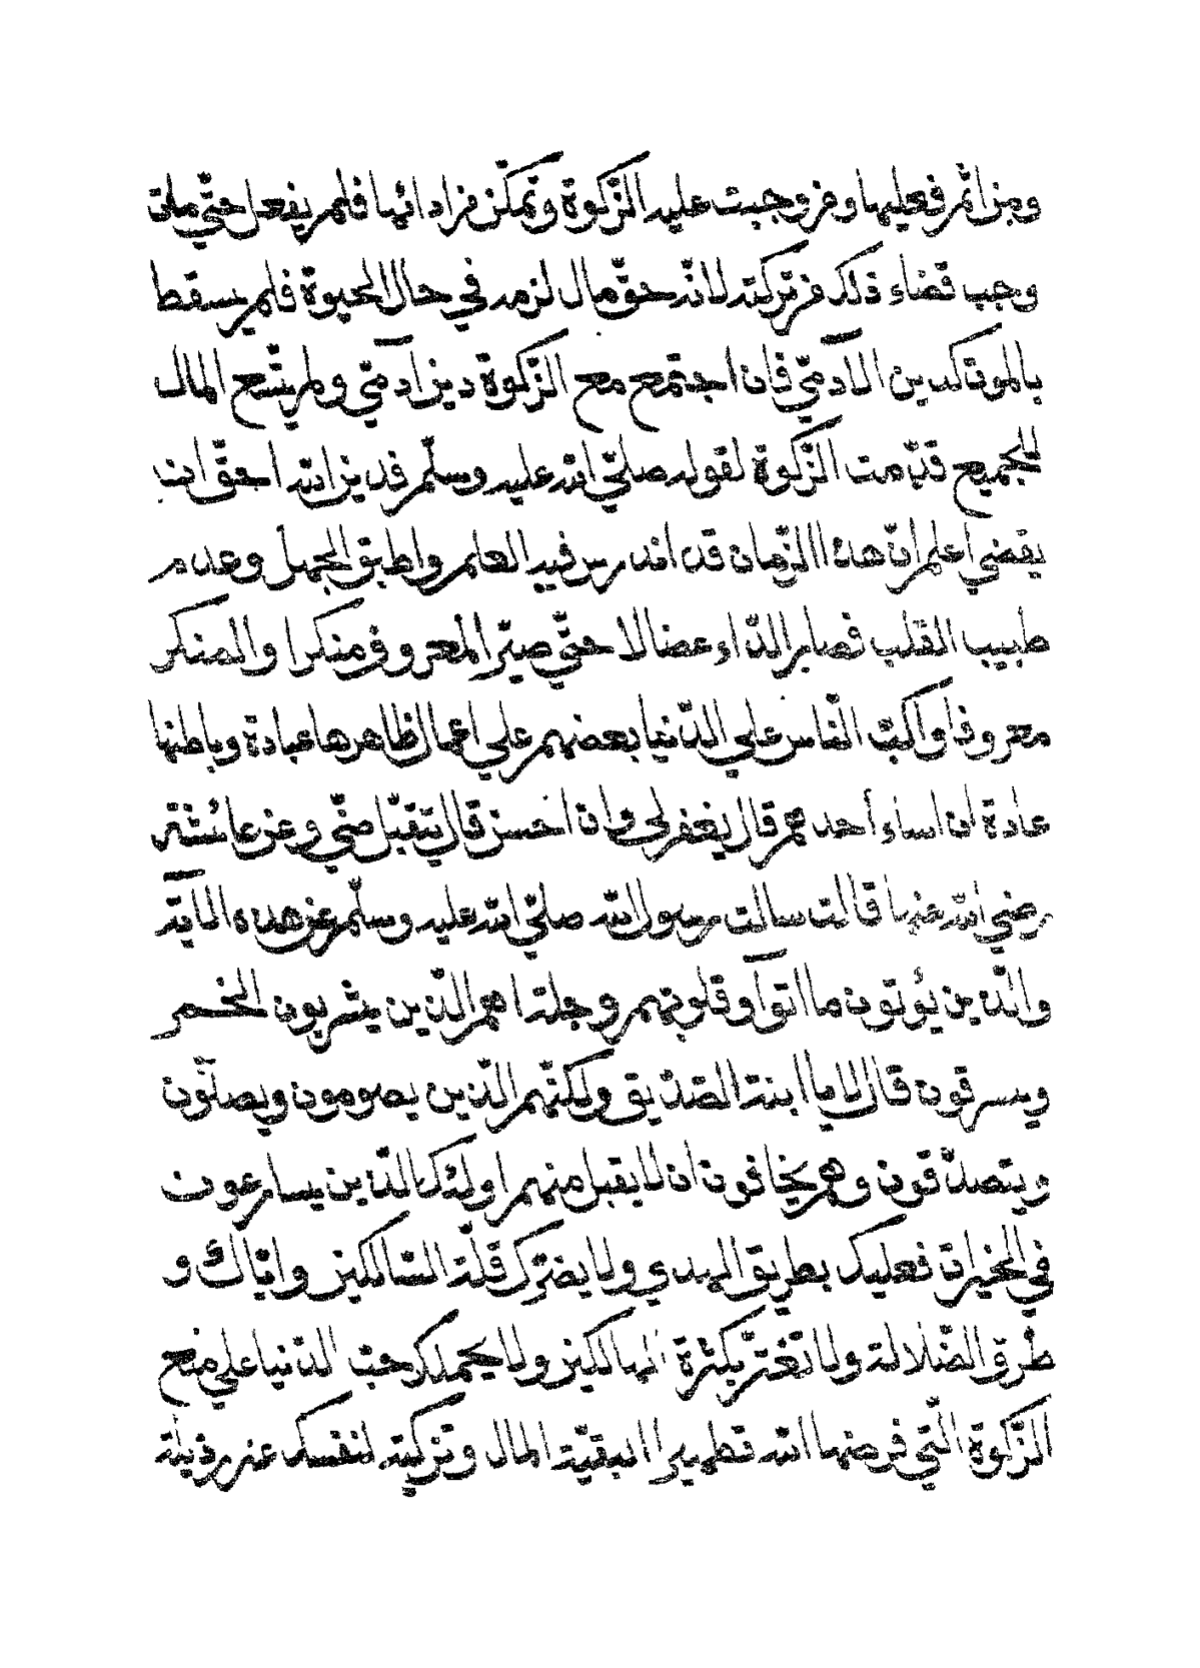 ومن اثم فعليها ومن وجبت عليه الزّكوة وتمكّن من ادائها فلم يفعل حتّي مات
وجب قضاء ذلك من تركته لانّه حقّ مال لزمه في حال الحيوة فلم يسقط
بالموت كدين الآدميّ فان اجتمع مع الزّكوة دين آدميّ ولم يتّسع المال
للجميع قدّمت الزّكوة لقوله صلّي الله عليه وسلّم فدين الله احقّ ان
يقضي اعلم انّ هذا الزّمان قد اندرس فيه العلم واطبق الجهل وعدم
طبيب القلب فصار الدّاء عضالا حتّي صيّر المعروف منكرا والمنكر
معروفا واكبّ النّاس علي الدّنيا بعضهم علي اعمال ظاهرها عبادة وباطنها
عادة ان اساء أحدهم قال يغفر لي وان احسن قال يتقبّل منّي وعن عائشة
رضي الله عنها قالت سالت رسول الله صلّي الله عليه وسلّم عن هذه الآية
والّذين يؤتون ما اتوآ وقلوبهم وجلة اهم الّذين يشربون الخمر
ويسرقون قال لا يا ابنة الصّدّيق ولكنّهم الّذين يصومون ويصلّون
ويتصدّقون وهم يخافون ان لا يقبل منهم اولئك الّذين يسارعون
في الخيرات فعليك بطريق الهدي ولا يضرّك قلّة السّالكين وايّاك و
طرق الضّلالة ولا تغترّ بكثرة الهالكين ولا يحملك حبّ الدّنيا علي منع
الزّكوة الّتي فرضها الله تطهيرا لبقيّة المال وتزكية لنفسك عن رذيلة